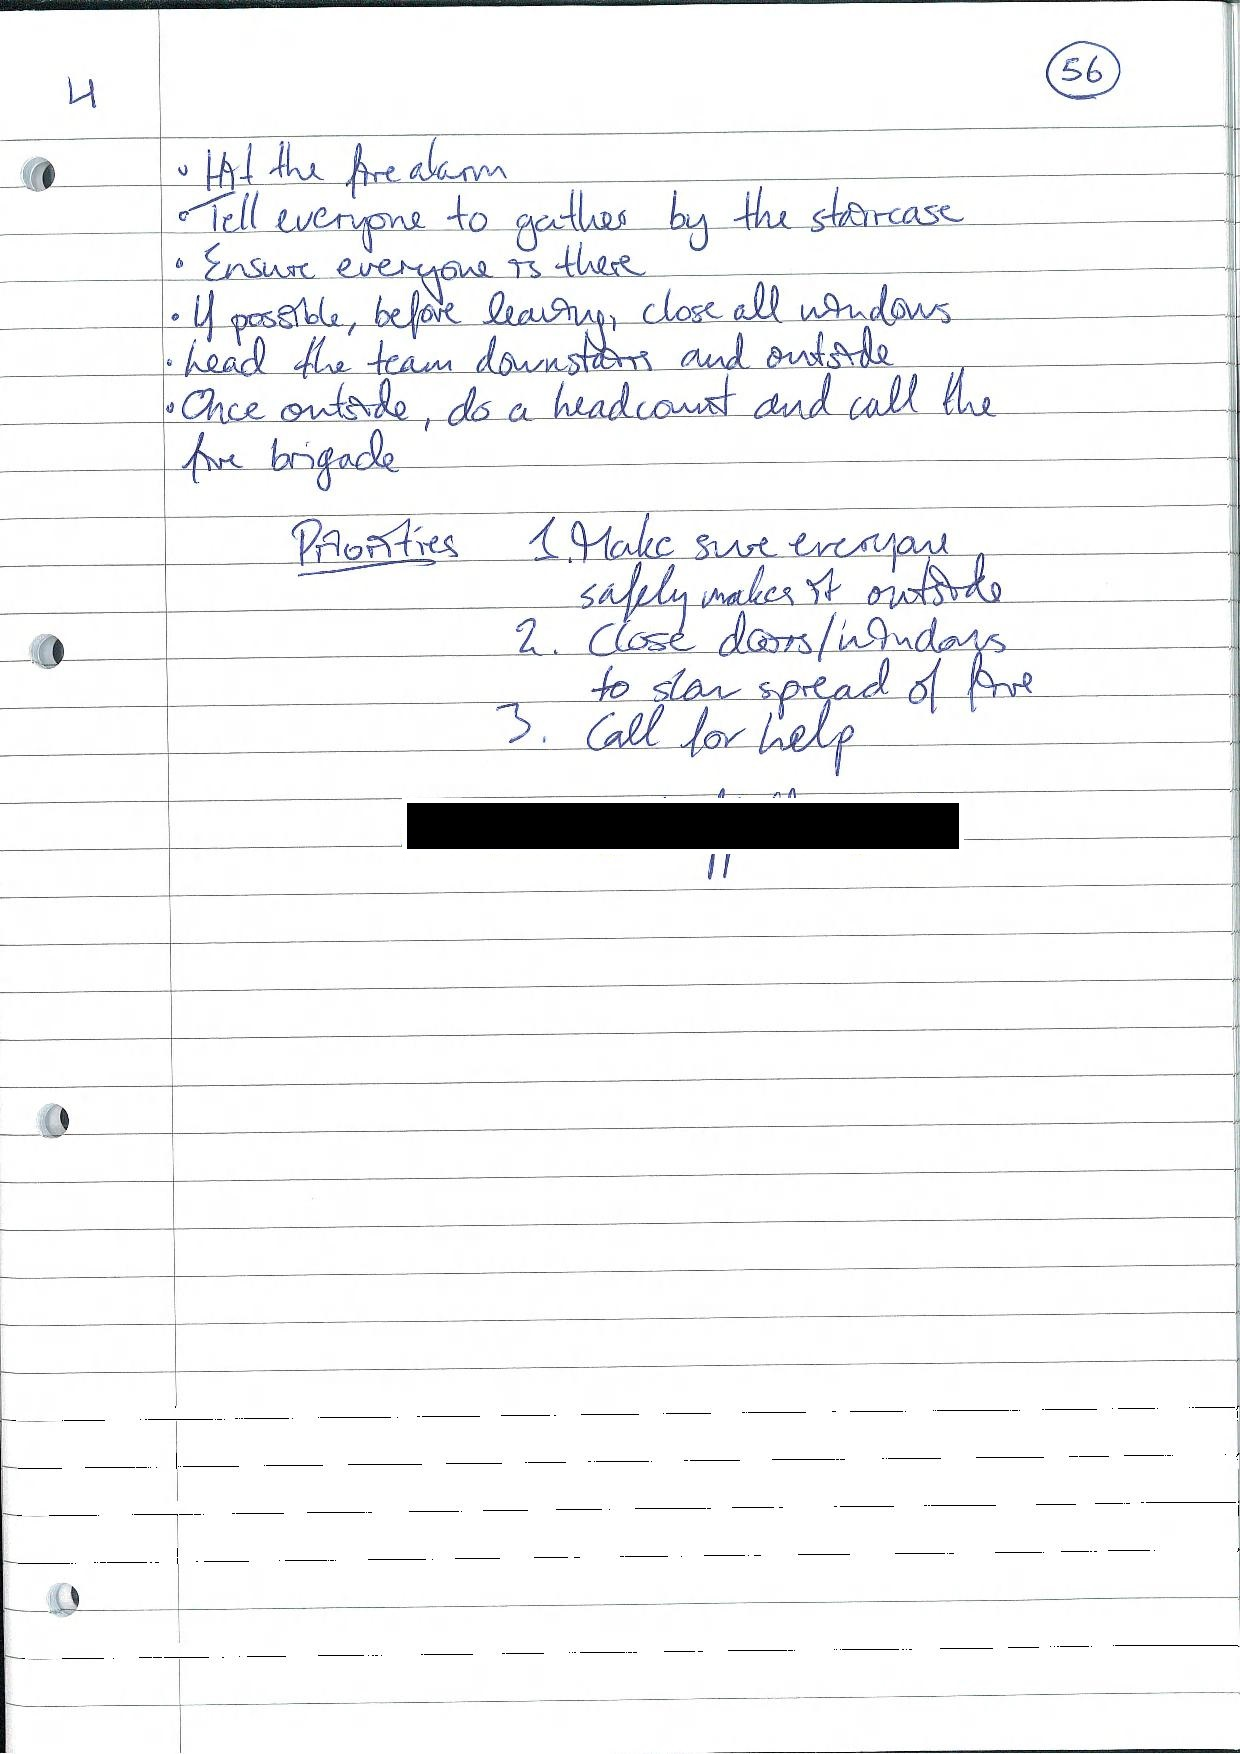 4
56
• Hit the fire alarm
• Tell everyone to gather by the staircase
• Ensure everyone is there
• If possible, before leaving, close all windows
• Lead the team downstairs and outside
• Once outside, do a headcount and call the
fire brigade
Priorities 1. Make sure everyone
safely makes it outside
2. Close doors/windows
to slow spread of fire
3. Call for help